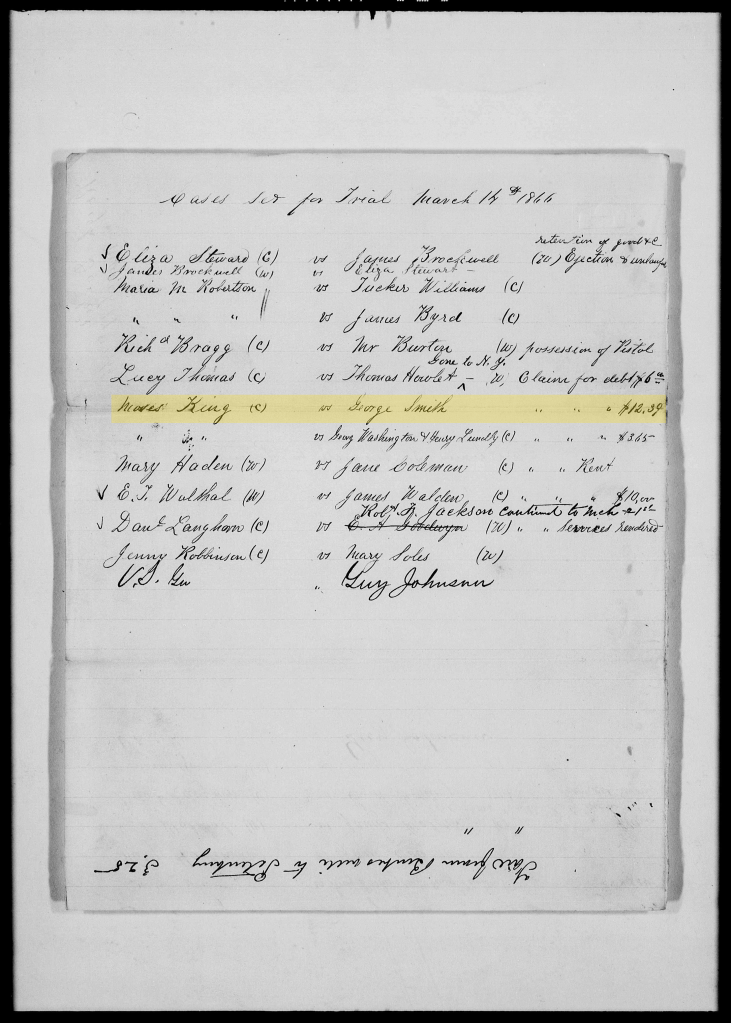 Cases Set for Trial March 14th 1866
retention of good &c
Eliza Steward (C) vs James Brockwell (W) Ejection &
James Brockwell (W) vs Eliza Stewart –
Maria M Robertson " vs Tucker Williams (C)
" " " vs James Byrd (C)
Richd Bragg (C) vs Mr Burton (W) possession of Pistol
Gone to N.Y.
Lucy Thomas (C) vs Thomas Howlet – (W) Claim for debt $6.00
Moses King (C) vs George Smith " " " $12.39
" " " vs Geo Washington & Henry Lundly (C) " " " $3.65
Mary Haden (W) vs Jane Coleman (C) " " Rent
E. T. Walthal (W) vs James Walden (C) " " " $10.00
Robt H. Jackson continued to Mch 21st
Danl Langhorn (C) vs E. A Goodwyn (W) " " Services rendered
Jenny Robbinson (C) vs Mary Soles (W)
U.S. Gov " Guy Johnson
Fare from to Petersburg 3.25
" "